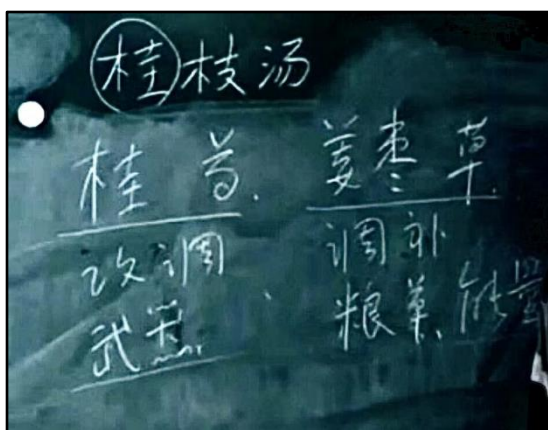 桂枝汤
桂 芍、姜枣草
攻调 调补
武器、粮草、能量